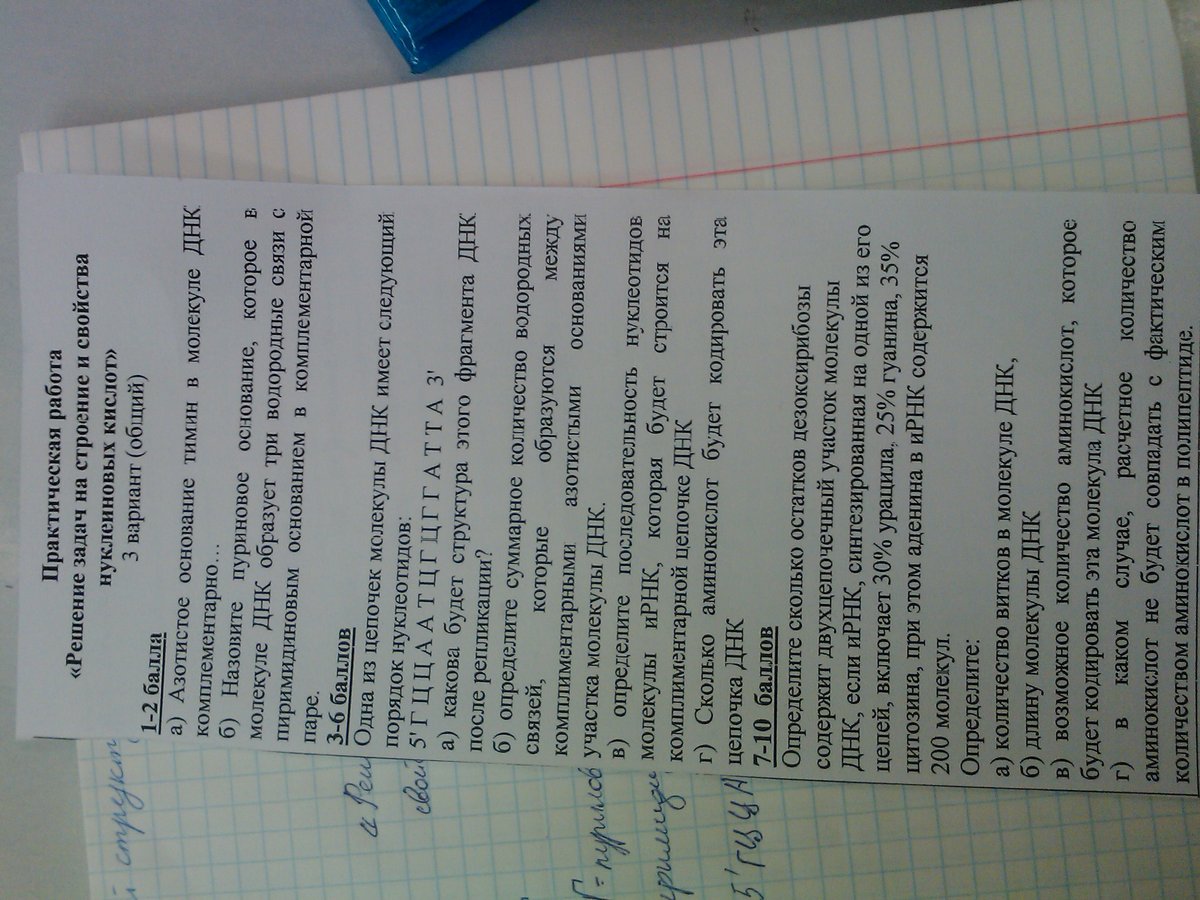 Практическая работа
«Решение задач на строение и свойства
нуклеиновых кислот»
3 вариант (общий)
1-2 балла
а) Азотистое основание тимин в молекуле ДНК
комплементарно…
б) Назовите пуриновое основание, которое в
молекуле ДНК образует три водородные связи с
пиримидиновым основанием в комплементарной
паре.
3-6 баллов
Одна из цепочек молекулы ДНК имеет следующий
порядок нуклеотидов:
5' Г Ц Ц А А Т Ц Г Ц Г Г А Т Т А 3'
а) какова будет структура этого фрагмента ДНК
после репликации?
б) определите суммарное количество водородных
связей, которые образуются между
комплиментарными азотистыми основаниями
участка молекулы ДНК.
в) определите последовательность нуклеотидов
молекулы иРНК, которая будет строится на
комплиментарной цепочке ДНК
г) Сколько аминокислот будет кодировать эта
цепочка ДНК
7-10 баллов
Определите сколько остатков дезоксирибозы
содержит двухцепочечный участок молекулы
ДНК, если иРНК, синтезированная на одной из его
цепей, включает 30% урацила, 25% гуанина, 35%
цитозина, при этом аденина в иРНК содержится
200 молекул.
Определите:
а) количество витков в молекуле ДНК,
б) длину молекулы ДНК
в) возможное количество аминокислот, которое
будет кодировать эта молекула ДНК
г) в каком случае, расчетное количество
аминокислот не будет совпадать с фактическим
количеством аминокислот в полипептиде.
й структ
а Реш
свой
Г = пуринов
5' ГЦЦА